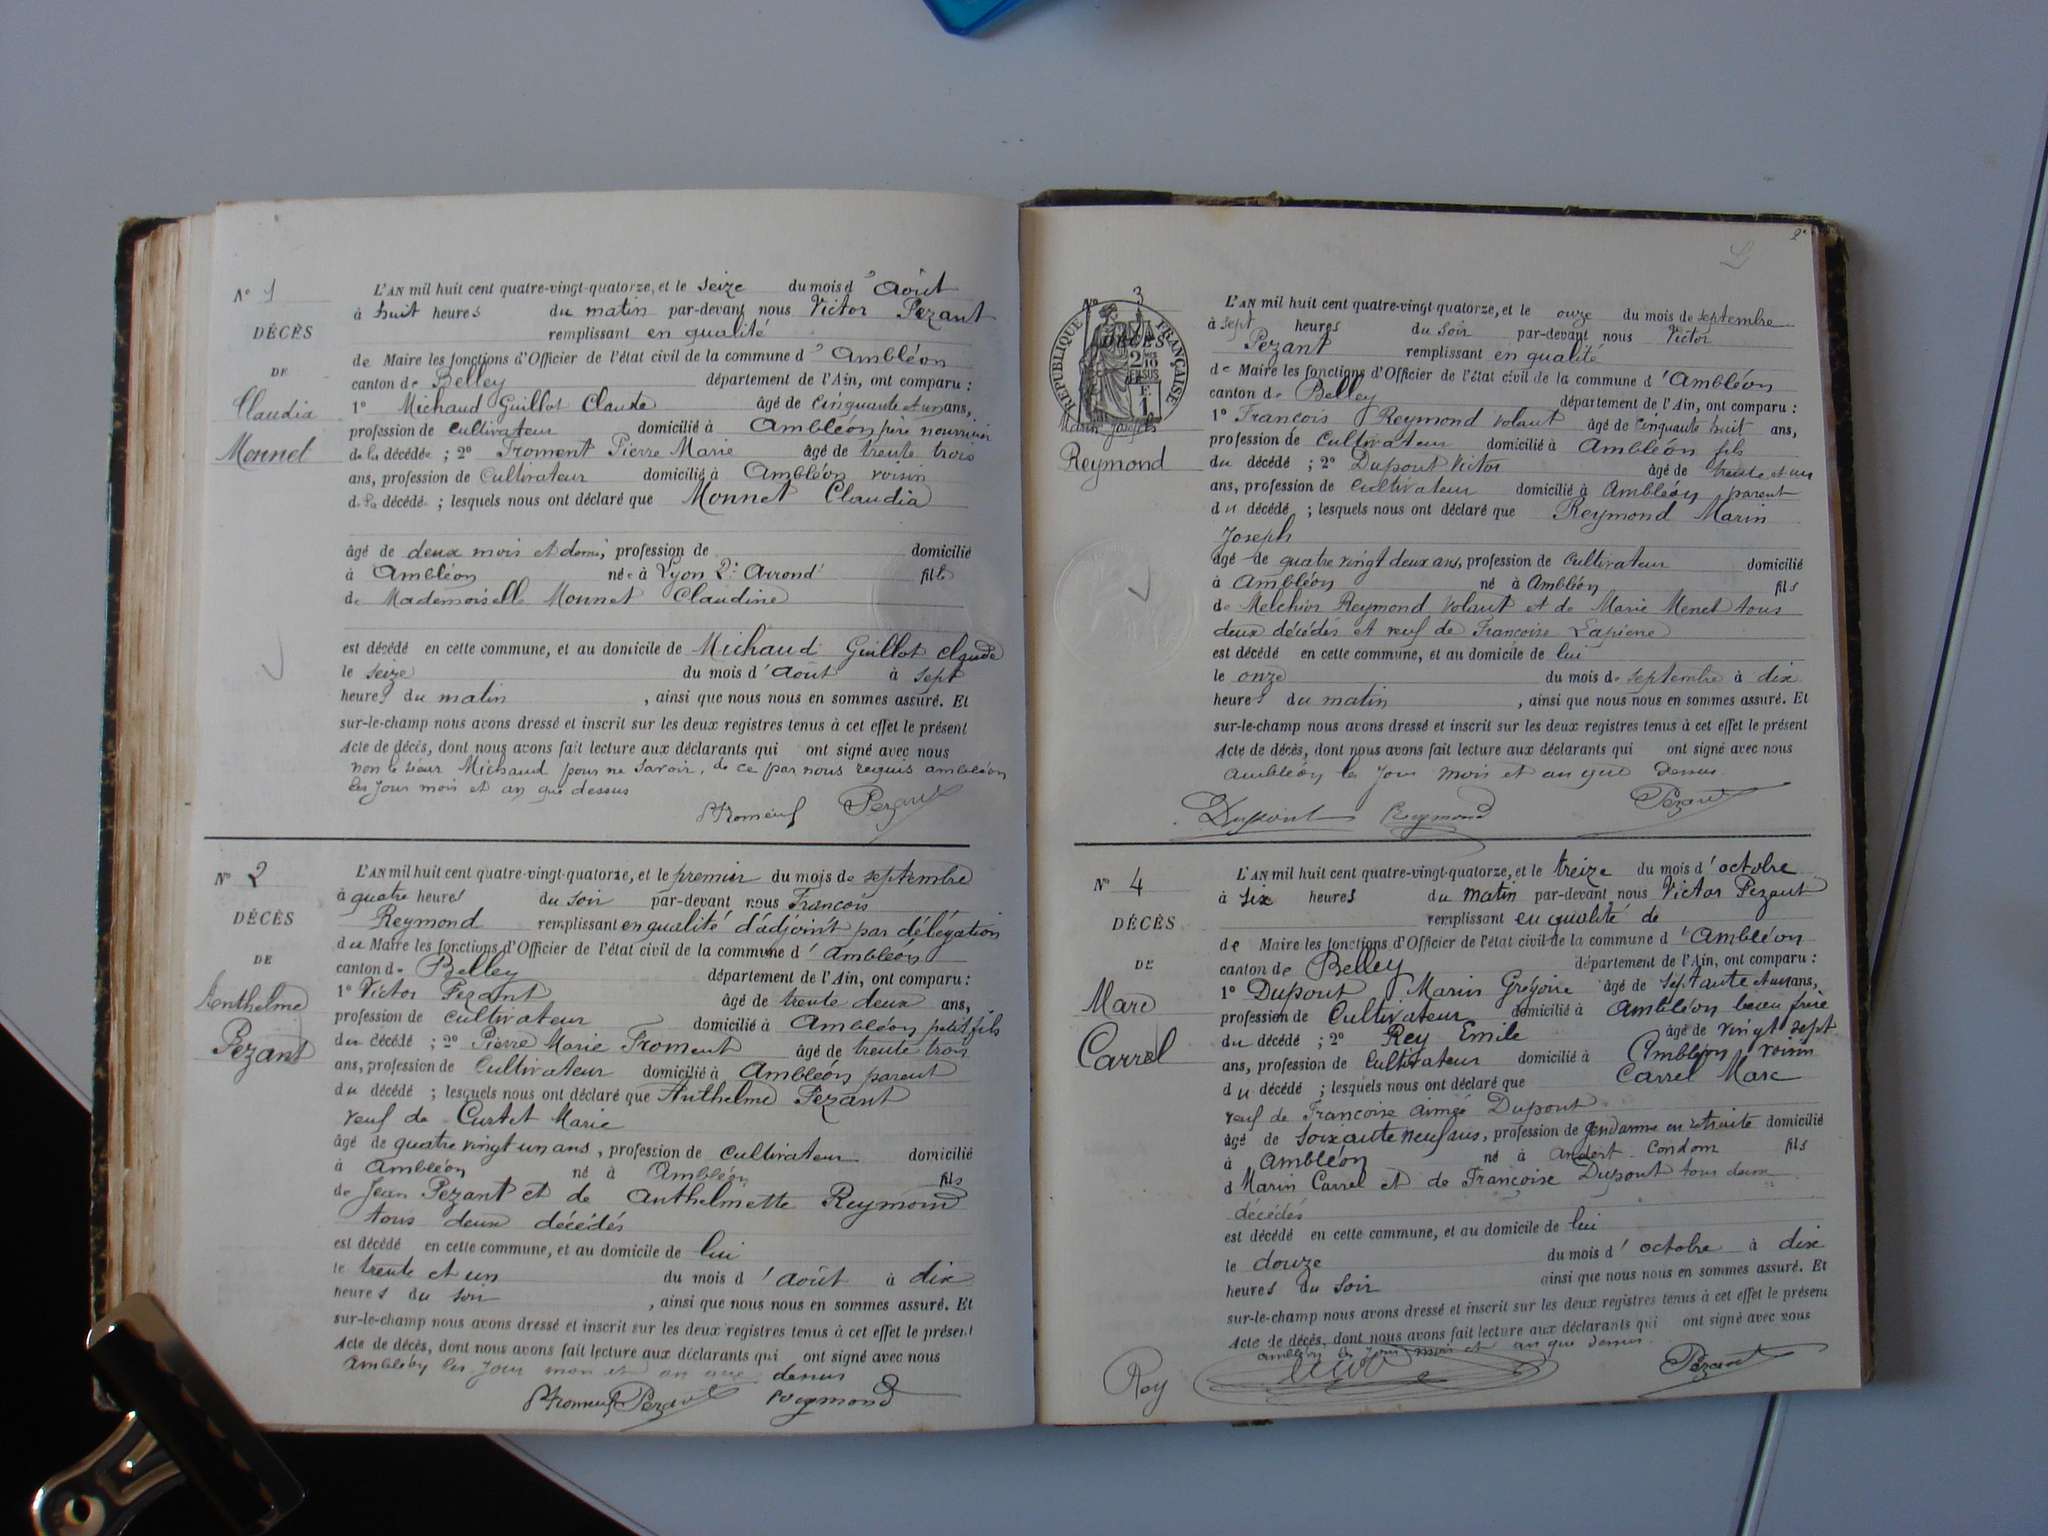 N° 1
DÉCÈS
DE
Claudia
Monnet
L'AN mil huit cent quatre-vingt-quatorze, et le seize du mois d'Août
à huit heures du matin par-devant nous Victor Pezant
remplissant en qualité
de Maire les fonctions d'Officier de l'état civil de la commune d'Ambléon
canton de Belley département de l'Ain, ont comparu :
1° Michaud Guillot Claude âgé de cinquante et un ans,
profession de cultivateur domicilié à Ambléon père nourricier
de la décédée ; 2° Froment Pierre Marie âgé de trente trois
ans, profession de Cultivateur domicilié à Ambléon voisin
de la décédé ; lesquels nous ont déclaré que Monnet Claudia
âgé de deux mois et demi, profession de domicilié
à Ambléon née à Lyon 2e Arrondt fille
de Mademoiselle Monnet Claudine
est décédé en cette commune, et au domicile de Michaud Guillot Claude
le seize du mois d'Août à sept
heures du matin , ainsi que nous nous en sommes assuré. Et
sur-le-champ nous avons dressé et inscrit sur les deux registres tenus à cet effet le présent
Acte de décès, dont nous avons fait lecture aux déclarants qui ont signé avec nous
non le sieur Michaud pour ne savoir, de ce par nous requis ambléon
les jour mois et an que dessus
Pezant
N° 2
DÉCÈS
DE
Anthelme
Pezant
L'AN mil huit cent quatre-vingt-quatorze, et le premier du mois de septembre
à quatre heures du soir par-devant nous François
Reymond remplissant en qualité d'adjoint par délégation
du Maire les fonctions d'Officier de l'état civil de la commune d'Ambléon
canton de Belley département de l'Ain, ont comparu :
1° Victor Pezant âgé de trente deux ans,
profession de cultivateur domicilié à Ambléon petit fils
du décédé ; 2° Pierre Marie Froment âgé de trente trois
ans, profession de Cultivateur domicilié à Ambléon parent
du décédé ; lesquels nous ont déclaré que Anthelme Pezant
veuf de Curtet Marie
âgé de quatre vingt un ans, profession de cultivateur domicilié
à Ambléon né à Ambléon fils
de Jean Pezant et de Anthelmette Reymond
tous deux décédés
est décédé en cette commune, et au domicile de lui
le trente et un du mois d'août à dix
heures du soir , ainsi que nous nous en sommes assuré. Et
sur-le-champ nous avons dressé et inscrit sur les deux registres tenus à cet effet le présent
Acte de décès, dont nous avons fait lecture aux déclarants qui ont signé avec nous
Ambléon les jour mois et an que dessus
Pezant Reymond
2e
N° 3
DÉCÈS
RÉPUBLIQUE FRANÇAISE
Marin Joseph
Reymond
L'AN mil huit cent quatre-vingt-quatorze, et le onze du mois de septembre
à sept heures du soir par-devant nous Victor
Pezant remplissant en qualité
de Maire les fonctions d'Officier de l'état civil de la commune d'Ambléon
canton de Belley département de l'Ain, ont comparu :
1° François Reymond volant âgé de cinquante huit ans,
profession de Cultivateur domicilié à Ambléon fils
du décédé ; 2° Dupont Victor âgé de trente et un
ans, profession de Cultivateur domicilié à Ambléon parent
du décédé ; lesquels nous ont déclaré que Reymond Marin
Joseph
âgé de quatre vingt deux ans, profession de Cultivateur domicilié
à Ambléon né à Ambléon fils
de Melchior Reymond Volant et de Marie Menet tous
deux décédés et veuf de Françoise
est décédé en cette commune, et au domicile de lui
le onze du mois de septembre à dix
heures du matin , ainsi que nous nous en sommes assuré. Et
sur-le-champ nous avons dressé et inscrit sur les deux registres tenus à cet effet le présent
Acte de décès, dont nous avons fait lecture aux déclarants qui ont signé avec nous
Ambléon les jour mois et an que dessus
Dupont Reymond Pezant
N° 4
DÉCÈS
DE
Marc
Carrel
L'AN mil huit cent quatre-vingt-quatorze, et le treize du mois d'octobre
à six heures du matin par-devant nous Victor Pezant
remplissant en qualité de
de Maire les fonctions d'Officier de l'état civil de la commune d'Ambléon
canton de Belley département de l'Ain, ont comparu :
1° Dupont Marin Grégoire âgé de septante et un ans,
profession de Cultivateur domicilié à Ambléon beau frère
du décédé ; 2° Rey Emile âgé de vingt sept
ans, profession de Cultivateur domicilié à Ambléon voisin
du décédé ; lesquels nous ont déclaré que Carrel Marc
veuf de Françoise aimée Dupont
âgé de soixante neuf ans, profession de gendarme en retraite domicilié
à Ambléon né à Andert-Condon fils
d Marin Carrel et de Françoise Dupont tous deux
décédés
est décédé en cette commune, et au domicile de lui
le douze du mois d'octobre à dix
heures du soir ainsi que nous nous en sommes assuré. Et
sur-le-champ nous avons dressé et inscrit sur les deux registres tenus à cet effet le présent
Acte de décès, dont nous avons fait lecture aux déclarants qui ont signé avec nous
ambléon les jour mois et an que dessus
Rey Pezant